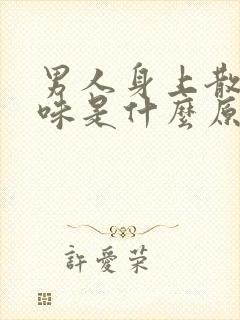 男人身上散
味是什麼原
許愛荣